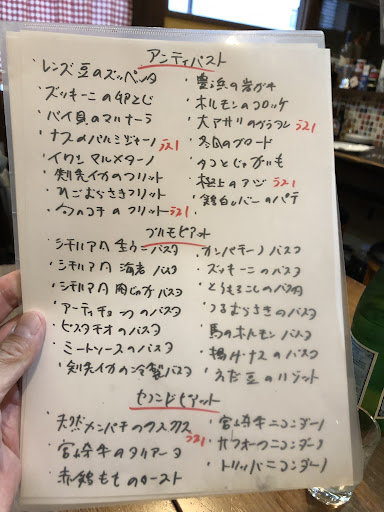 アンティパスト
・レンズ豆のズッペッタ
・ズッキーニの卵とじ
・バイ貝のマルナーラ
・ナスのパルミジャーノ
・イワシ マルメターノ
・剣先イカのフリット
・のフリット
・豊浜の岩ガキ
・ホルモンのコロッケ
・大アサリのグラタン
・冬瓜のブロード
・タコとじゃがいも
・極上のアジ
・鶏白レバーのパテ
プリモピアット
・シチリア風 生ウニパスタ
・シチリア風 海老 パスタ
・シチリア風 肉じゃがパスタ
・アーティチョークのパスタ
・ピスタチオのパスタ
・ミートソースのパスタ
・剣先イカの冷製パスタ
・カンパチーノパスタ
・ズッキーニのパスタ
・とうもろこしのパスタ
・つるむらさきのパスタ
・馬のホルモンパスタ
・揚げナスのパスタ
・えだ豆のリゾット
セコンドピアット
・天然メンパチのクスクス
・宮崎牛のタリアータ
・赤鶏もものロースト
・宮崎牛ニコンダーノ
・トリッパニコンダーノ